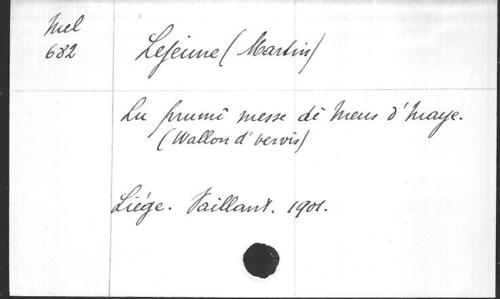 Mel
682
Lejeune (Martin)
Lu prumî messe dè meus d'maye.
(Wallon d'vervis)
Liége. Vaillant. 1901.